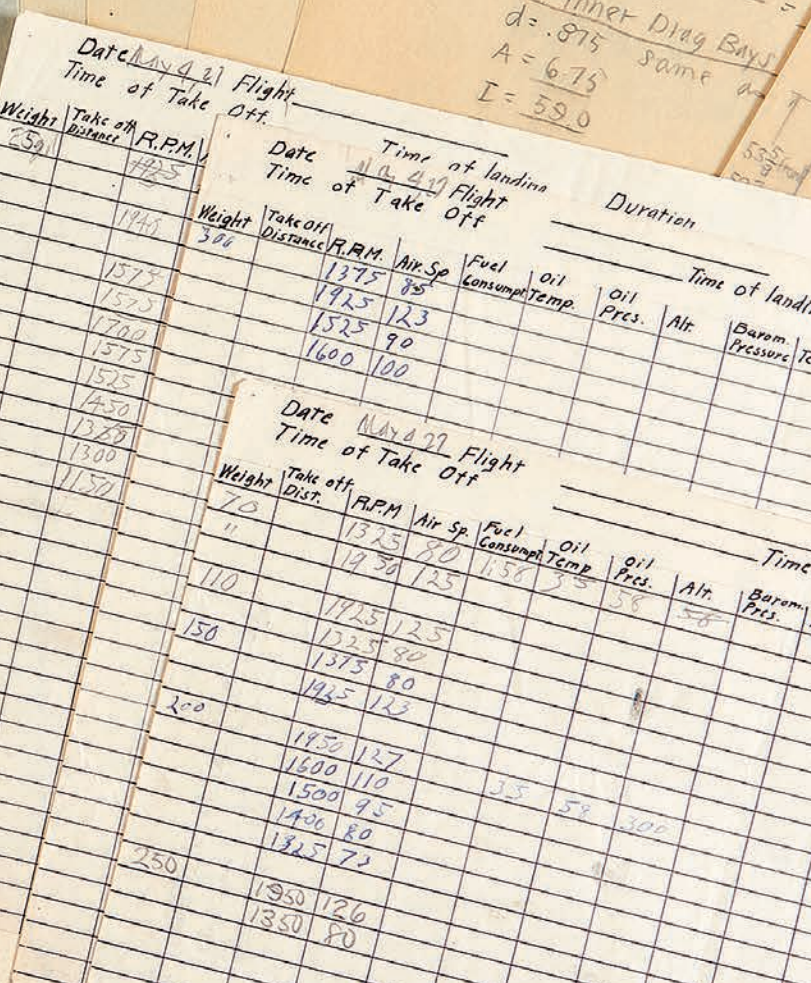 Inner Drag Bays
d = .875 same
A = 6.75
I = 59.0
Date May 4, 27 Flight
Time of Take Off.
Weight Take off Distance R.P.M.
250
1925
1575
1575
1700
1575
1525
1450
1350
1300
1150
Time of landing
Date May 4 27 Flight Duration
Time of Take Off
Time of landi
Weight Take Off Distance R.P.M. Air. Sp Fuel Consumpt Oil Temp. Oil Pres. Alt. Barom. Pressure
300
1375 85
1925 123
1525 90
1600 100
Date May 4 27 Flight
Time of Take Off
Time
Weight Take off Dist. R.P.M Air Sp. Fuel Consumpt Oil Temp Oil Pres. Alt. Barom. Pres.
70 1325 80 1:56 35 58 58
" 1950 125
110
1925 125
1325 80
150 1375 80
1925 123
200
1950 127
1600 110
1500 95 35 58 300
1400 80
1325 73
250
1950 126
1350 80